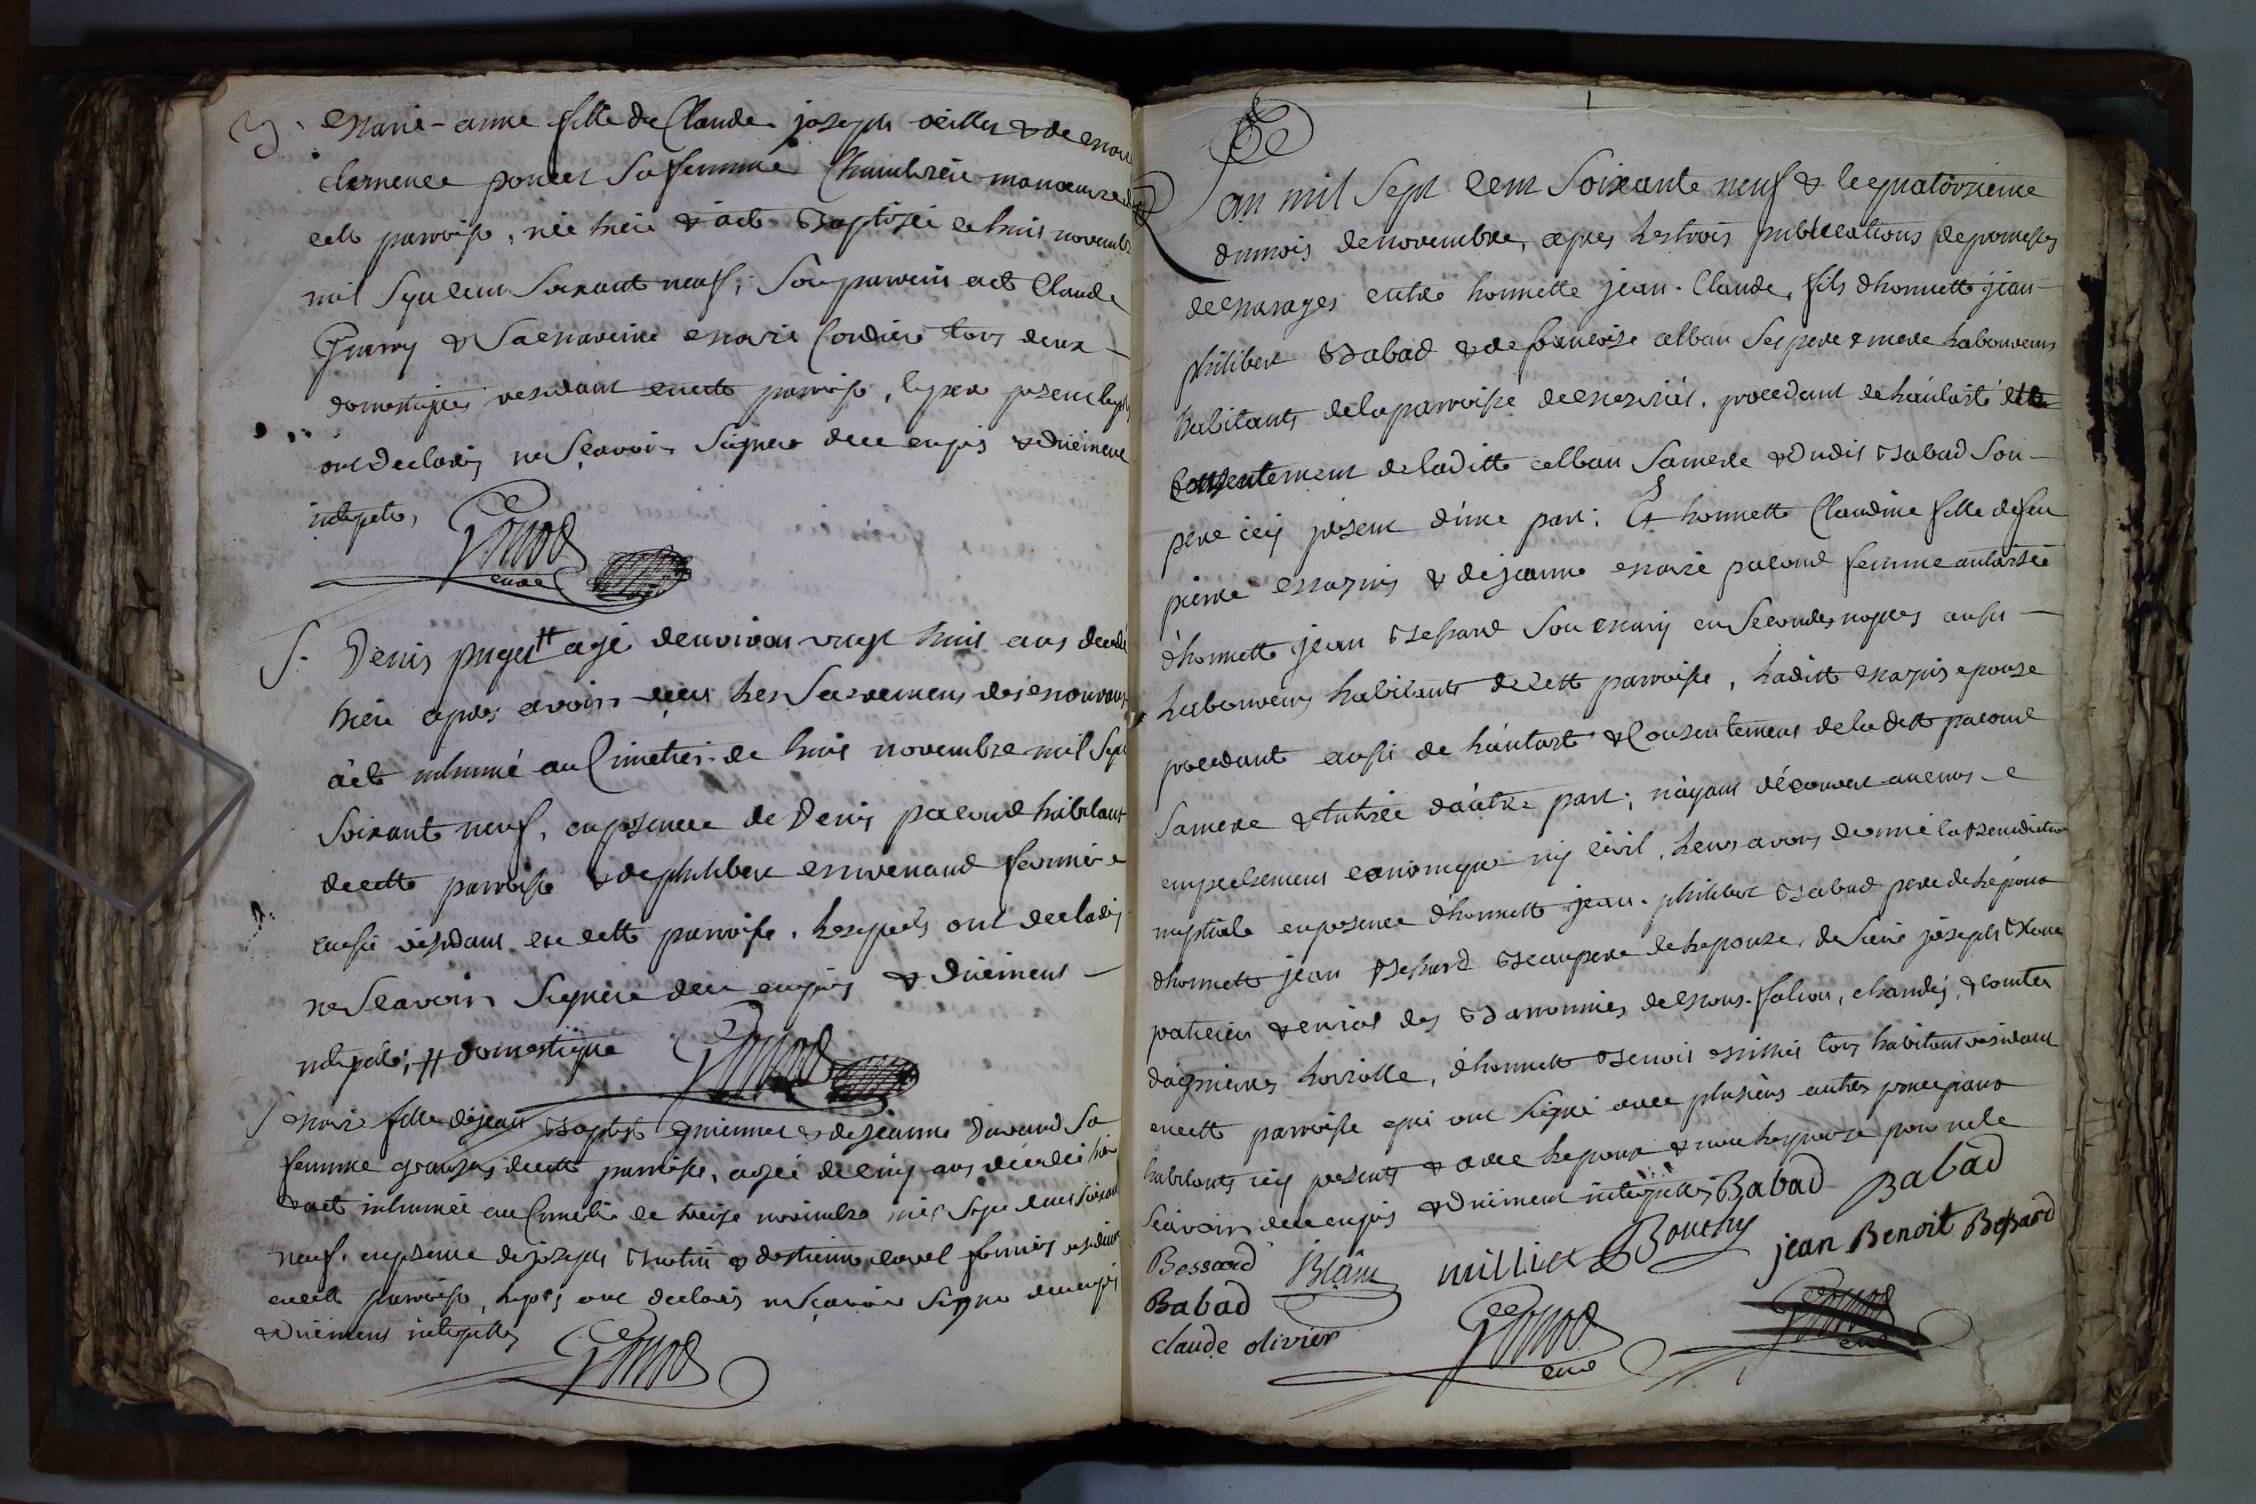 B. Marie-anne fille de Claude joseph oeillet & de Marie
clemence poncet sa femme manoeuvre de
cette parroisse, née hier & a été Baptisée le huit novembre
mil sept cent soixante neuf; son parrein est Claude
& sa mareine Marie Cordier tous deux
domestiques residant en cette parroisse, le pere present lesquels
ont declarés ne sçavoir signer de ce enquis & duement
interpellés,
Gonod
curé
S. Denis puget # agé d'environ vingt huit ans decedé
hier apres avoir reçu les sacremens des mourans
a été inhumé au Cimetier le huit novembre mil sept
soixante neuf, en presence de Denis pacoud habitant
de cette parroisse & de philibert fermier
aussi résidant en cette parroisse, lesquels ont declarés
ne sçavoir signer de ce enquis & duement
interpellés, # domestique
Gonod
S. Marie fille de jean Baptiste & de jeanne Durand sa
femme grangers de cette parroisse, agée de cinq ans decedée hier
& a été inhumée au Cimetier le treize novembre mil sept cent soixante
neuf, en presence de joseph & d'estienne fermiers residants
en cette parroisse, lesquels ont declarés ne sçavoir signer de ce enquis
& duement interpellés
Gonod
L'an mil sept cent soixante neuf & le quatorzieme
du mois de novembre, apres les trois publications de promesses
de Mariages entre honnette jean-Claude, fils d'honnette jean-
philibert Babad & de françoise alban ses pere & mere laboureurs
habitants de la parroisse de procedant de l'autorité &
Consentement de laditte alban sa mere & dudit Babad son
pere icy present d'une part; Et honnette Claudine fille de feu
pierre & de jeanne Marie pacoud femme autorisée
d'honnette jean Bessard son mary en secondes nopces aussi
laboureurs habitants de cette parroisse, laditte epouse
procedante aussi de l'autorité & Consentement de laditte pacoud
sa mere & tutrice d'autre part; n'ayant découvert aucuns
empechemens canonique ny civil, leurs avons donné la Benediction
nuptiale en presence d'honnette jean-philibert Babad pere de l'époux
d'honnette jean Bessard Beaupere de l'epouse, de sieur joseph Blanc
praticien & des Baronnies de chandé, & comtés
d'honnette Benoit Millier tous habitans residant
en cette parroisse qui ont signé avec plusieurs autres
habitants icy presents & avec l'epoux & non l'epouse pour ne le
sçavoir de ce enquis & duement interpellés Babad Babad
Bessard Blanc millier Bouchy jean Benoit Bessard
Babad
claude olivier Gonod
curé